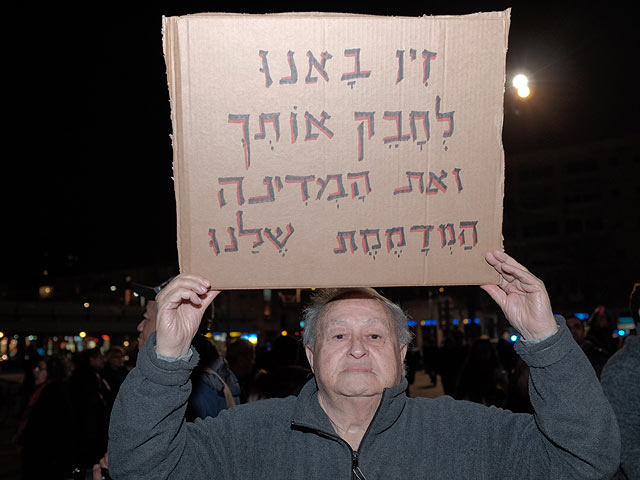 זִיו בָּאנוּ
לְחַבֵּק אוֹתְךָ
ואת הַמְדִינָה
הַמְדַמֶמֶת שֶלָנוּ